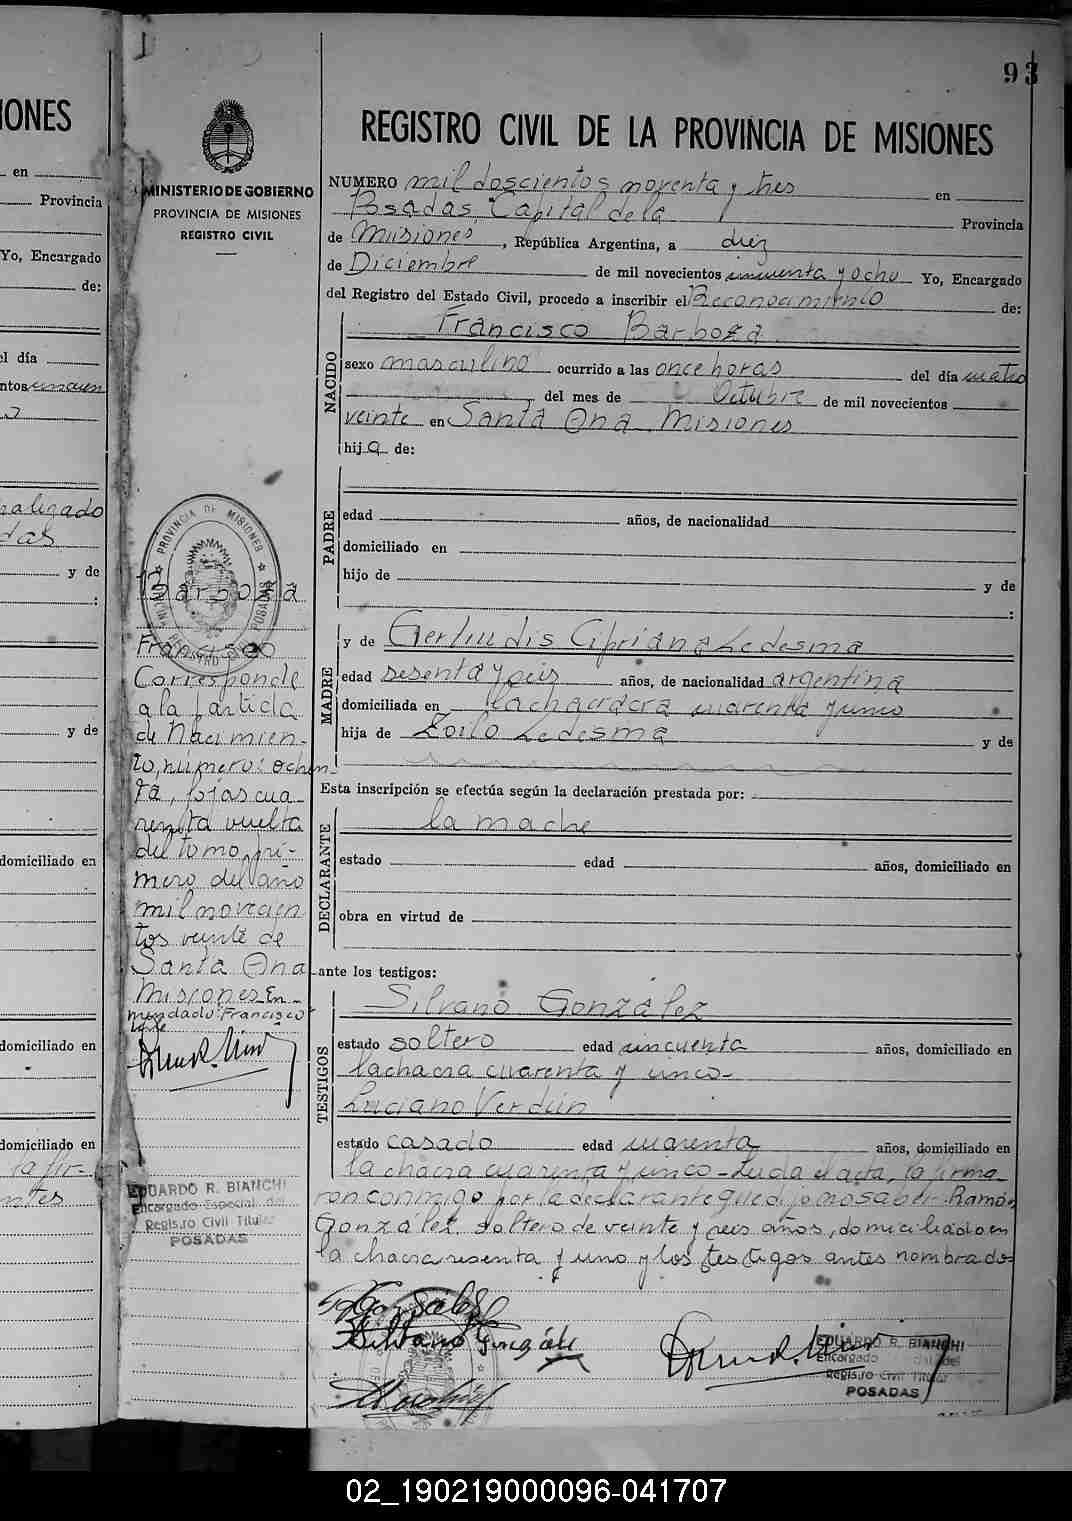 93
IONES
REGISTRO CIVIL DE LA PROVINCIA DE MISIONES
MINISTERIO DE GOBIERNO
PROVINCIA DE MISIONES
REGISTRO CIVIL
NUMERO mil doscientos noventa y tres en
Posadas, Capital de la Provincia
de Misiones, República Argentina, a diez
de Diciembre de mil novecientos cincuenta y ocho Yo, Encargado
del Registro del Estado Civil, procedo a inscribir el Reconocimiento de:
Francisco Barboza
NACIDO
sexo masculino ocurrido a las once horas del día cuatro
del mes de Octubre de mil novecientos
veinte en Santa Ana Misiones
hijo de:
PADRE
edad años, de nacionalidad
domiciliado en
hijo de y de
:
MADRE
y de Gertrudis Cipriana Ledesma
edad sesenta y seis años, de nacionalidad argentina
domiciliada en la chacra cuarenta y cinco
hija de Zoilo Ledesma y de
Esta inscripción se efectúa según la declaración prestada por:
la madre
DECLARANTE
estado edad años, domiciliado en
obra en virtud de
ante los testigos:
TESTIGOS
Silvano González
estado soltero edad cincuenta años, domiciliado en
la chacra cuarenta y cinco-
Luciano Verdún
estado casado edad cuarenta años, domiciliado en
la chacra cuarenta y cinco - Leída el acta, la firma-
ron conmigo por la declarante que dijo no saber - Ramón
González, soltero de veinte y seis años, domiciliado en
la chacra sesenta y uno y los testigos antes nombrados
Silvano González
EDUARDO R. BIANCHI
Encargado Especial del
Registro Civil Titular
POSADAS
PROVINCIA DE MISIONES
POSADAS
Barboza
Francisco
Corresponde
a la partida
de Nacimien-
to, número: ochen-
ta, fojas cua-
renta vuelta
del tomo pri-
mero del año
mil novecien
tos veinte de
Santa Ana
Misiones - En-
mendado: Francisco
Vale
EDUARDO R. BIANCHI
Encargado Especial del
Registro Civil Titular
POSADAS
en
Provincia
Yo, Encargado
de:
el día
ntos cincuen
y de
:
y de
domiciliado en
domiciliado en
domiciliado en
la fir-
02_190219000096-041707